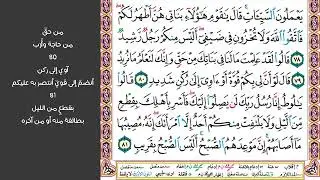 يَعْمَلُونَ ٱلسَّيِّـَٔاتِ قَالَ يَـٰقَوْمِ هَـٰٓؤُلَآءِ بَنَاتِى هُنَّ أَطْهَرُ لَكُمْ
فَٱتَّقُوا۟ ٱللَّهَ وَلَا تُخْزُونِ فِى ضَيْفِىٓ أَلَيْسَ مِنكُمْ رَجُلٌ رَّشِيدٌ
٧٨ قَالُوا۟ لَقَدْ عَلِمْتَ مَا لَنَا فِى بَنَاتِكَ مِنْ حَقٍّ وَإِنَّكَ لَتَعْلَمُ مَا نُرِيدُ
٧٩ قَالَ لَوْ أَنَّ لِى بِكُمْ قُوَّةً أَوْ ءَاوِىٓ إِلَىٰ رُكْنٍ شَدِيدٍ ٨٠ قَالُوا۟
يَـٰلُوطُ إِنَّا رُسُلُ رَبِّكَ لَن يَصِلُوٓا۟ إِلَيْكَ فَأَسْرِ بِأَهْلِكَ بِقِطْعٍ
مِّنَ ٱلَّيْلِ وَلَا يَلْتَفِتْ مِنكُمْ أَحَدٌ إِلَّا ٱمْرَأَتَكَ إِنَّهُۥ مُصِيبُهَا
مَآ أَصَابَهُمْ إِنَّ مَوْعِدَهُمُ ٱلصُّبْحُ أَلَيْسَ ٱلصُّبْحُ بِقَرِيبٍ ٨١
من حق
من حاجة وأرب
80
آوي إلى ركن
أنضم إلى قوي أنتصر به عليكم
81
بقطع من الليل
بطائفة منه أو من آخره